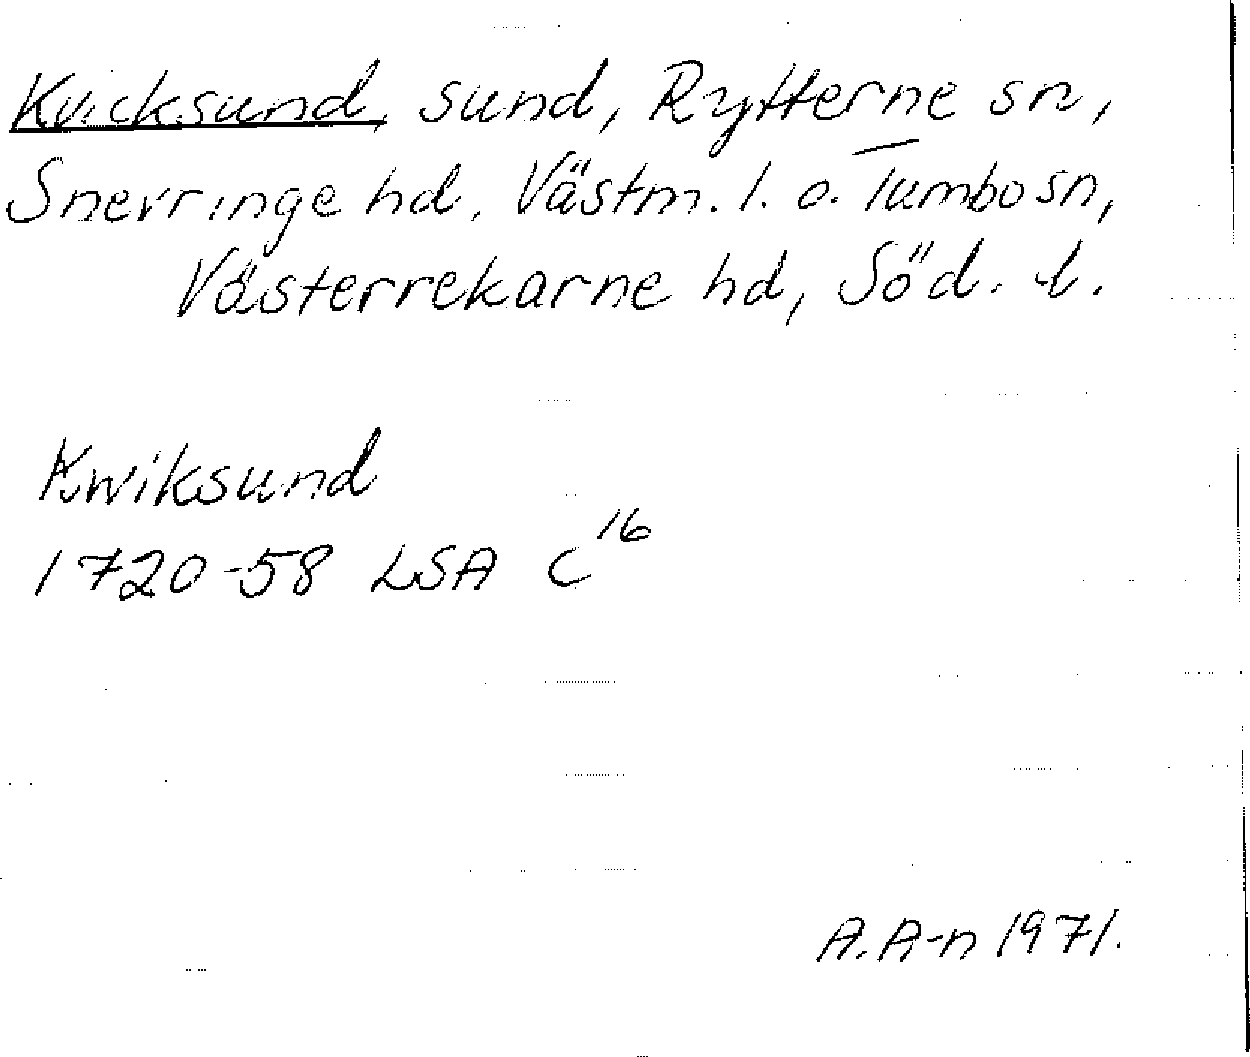 Kvicksund, sund, Rytterne sn,
Snevringe hd, Västm. l. o. Tumbo sn,
Västerrekarne hd, Söd. l.
Kwiksund
1720-58 LSA C16
A. A-n 1971.